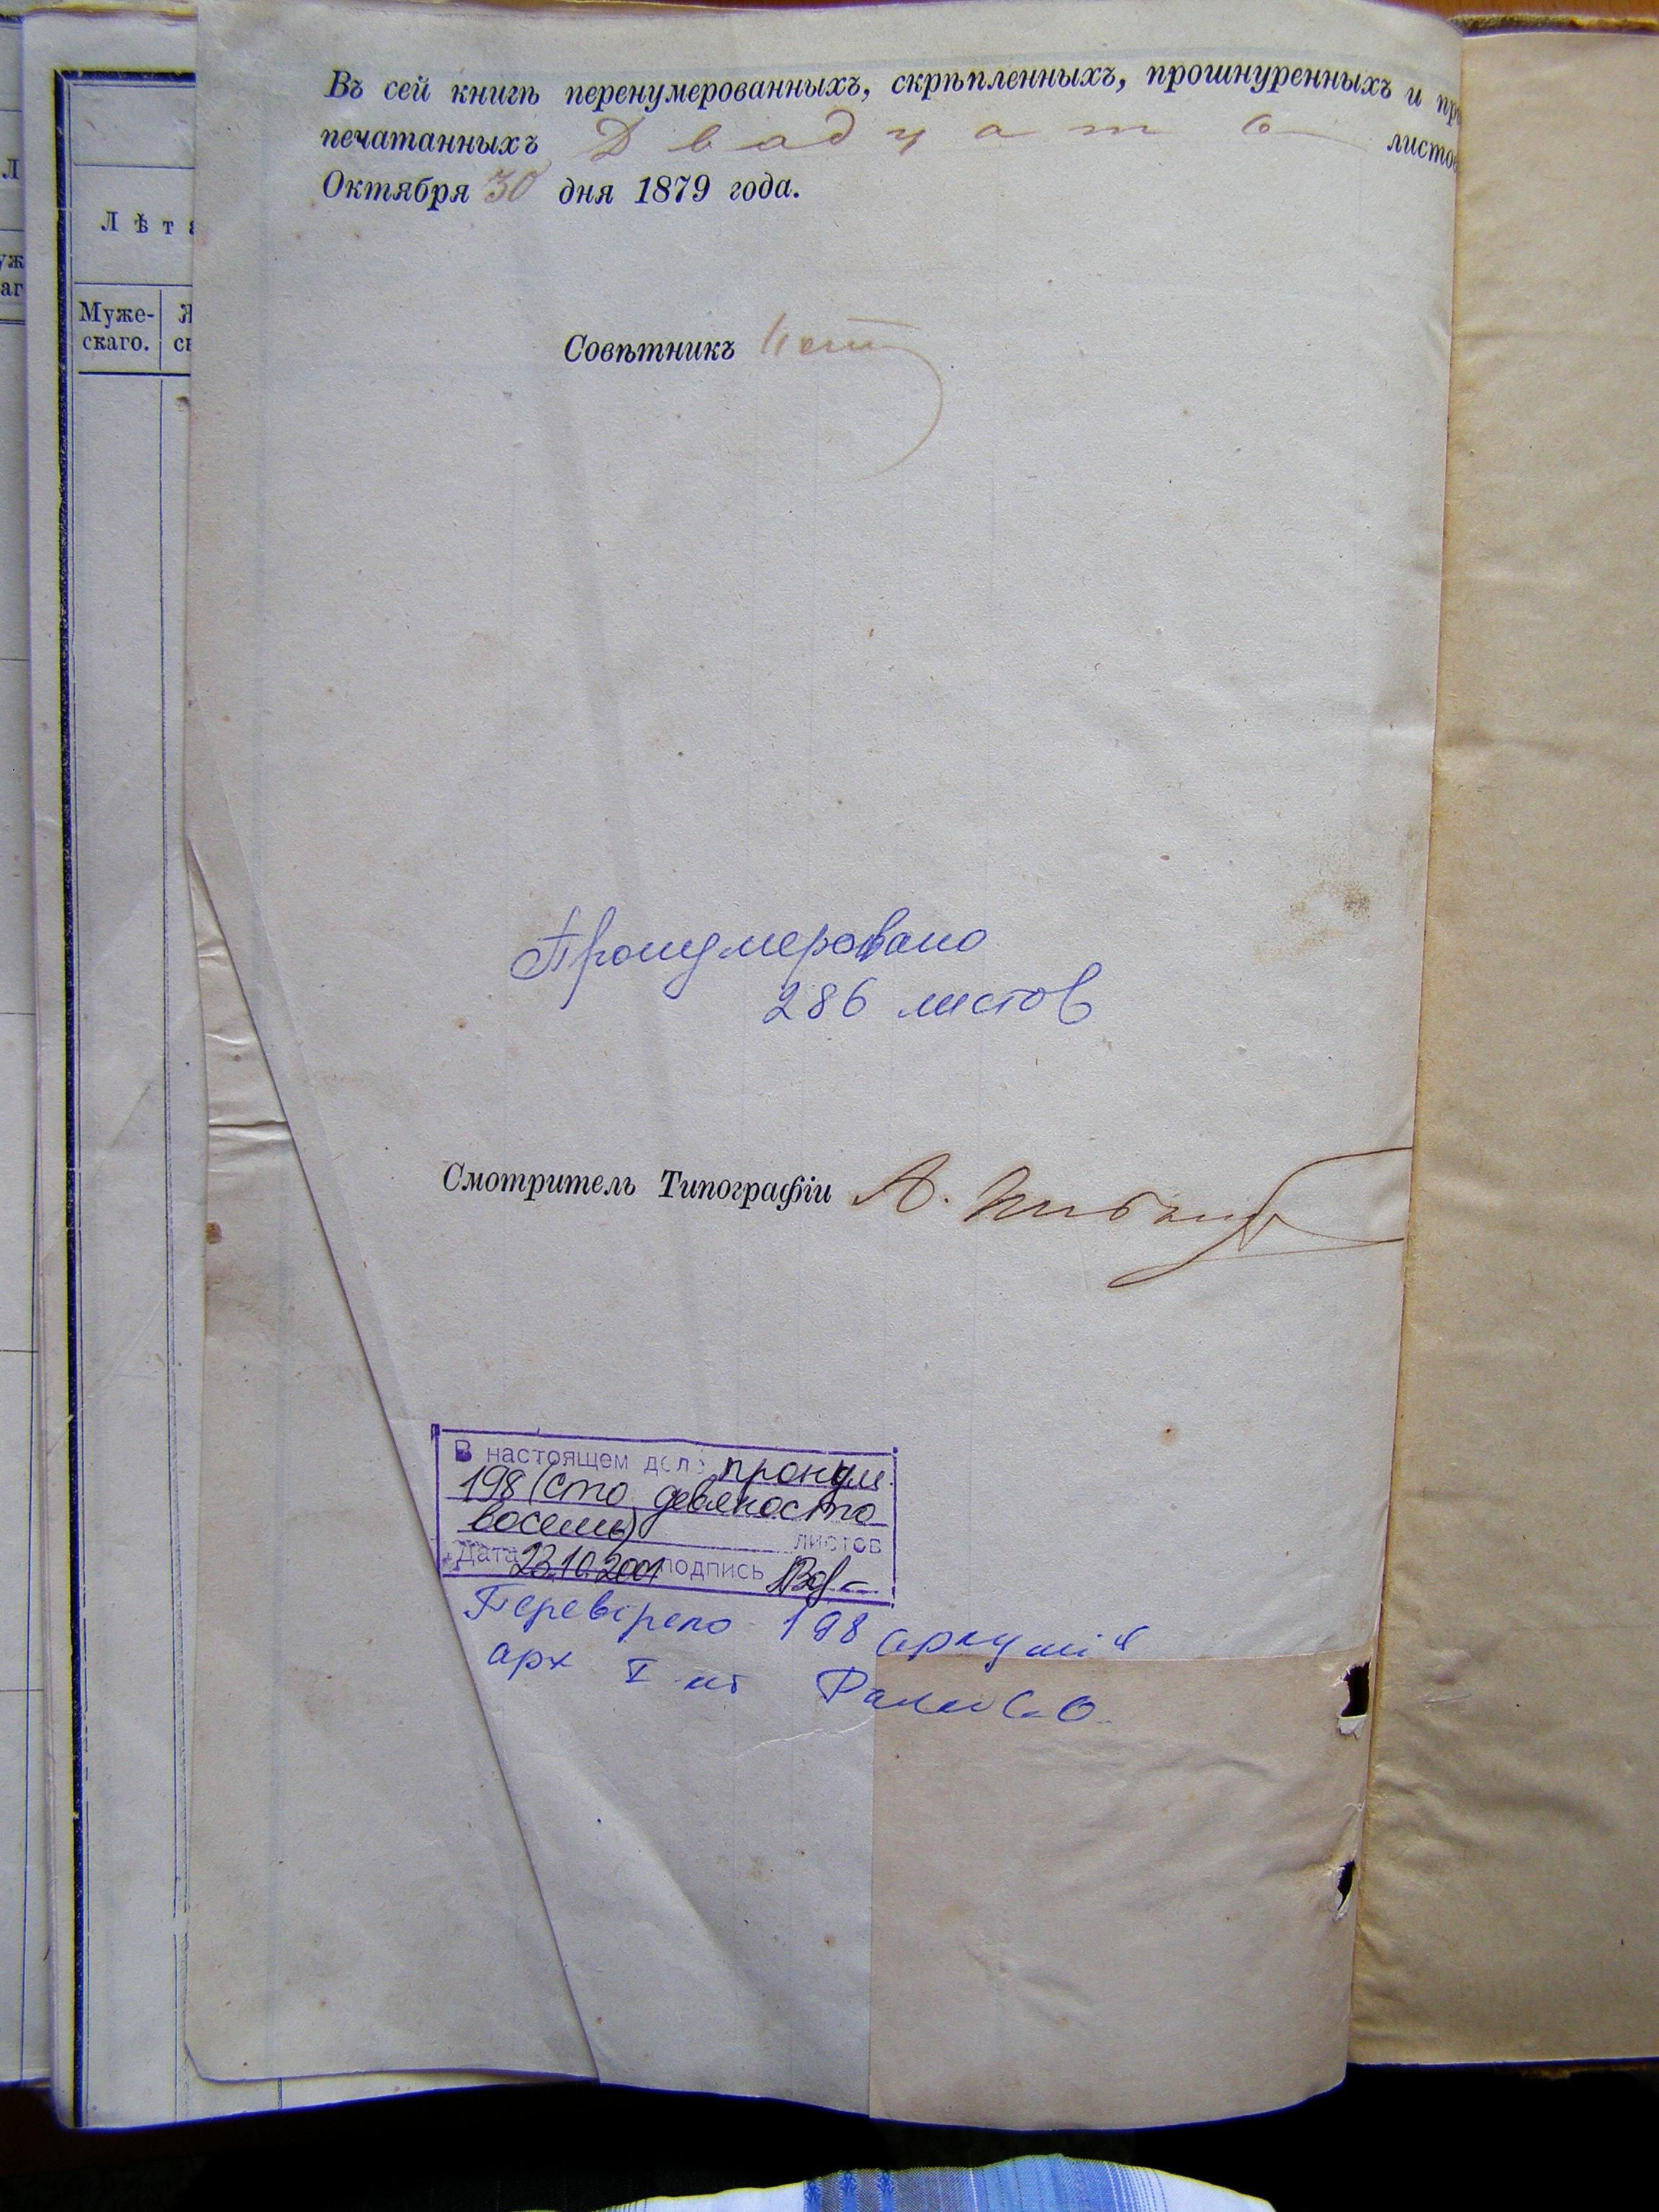 Въ сей книгѣ перенумерованныхъ, скрѣпленныхъ, прошнуренныхъ и пр
печатанныхъ Двадцать листов
Октября 30 дня 1879 года.
Л
Лѣта
уж
аг
Муже-
скаго.
Совѣтникъ
Пронумеровано
286 листов
Смотритель Типографіи А.
В настоящем деле пронум.
198 (сто девяносто
восемь) листов
Дата 23.10.2001 подпись
Перевірено 198 аркушів
арх I кт